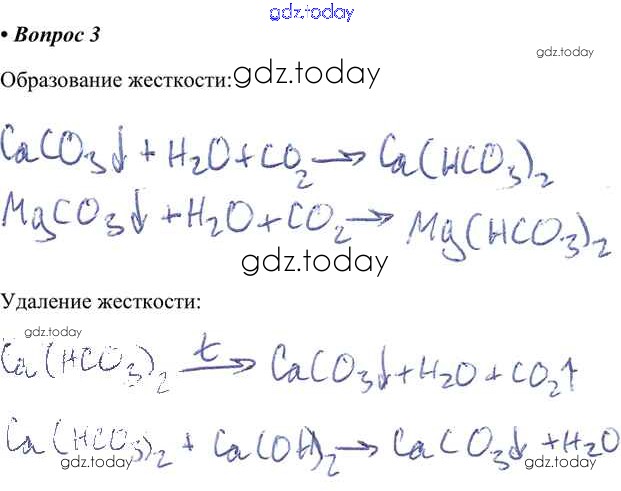 gdz.today
• Вопрос 3
gdz.today
Образование жесткости:
gdz.today
CaCO3↓ + H2O + CO2 → Ca(HCO3)2
MgCO3↓ + H2O + CO2 → Mg(HCO3)2
gdz.today
Удаление жесткости:
gdz.today
Ca(HCO3)2 t→ CaCO3↓ + H2O + CO2↑
Ca(HCO3)2 + Ca(OH)2 → CaCO3↓ + H2O
gdz.today
gdz.today
gdz.today